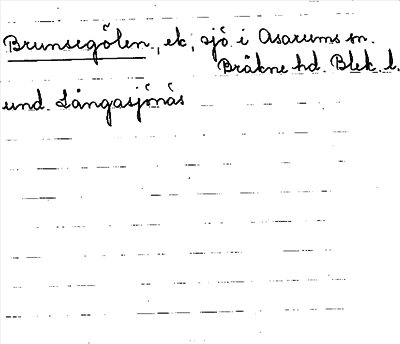 Brunsegölen, ek, sjö i Asarums sn.
Bräkne hd. Blek. l.
und. Långasjönäs